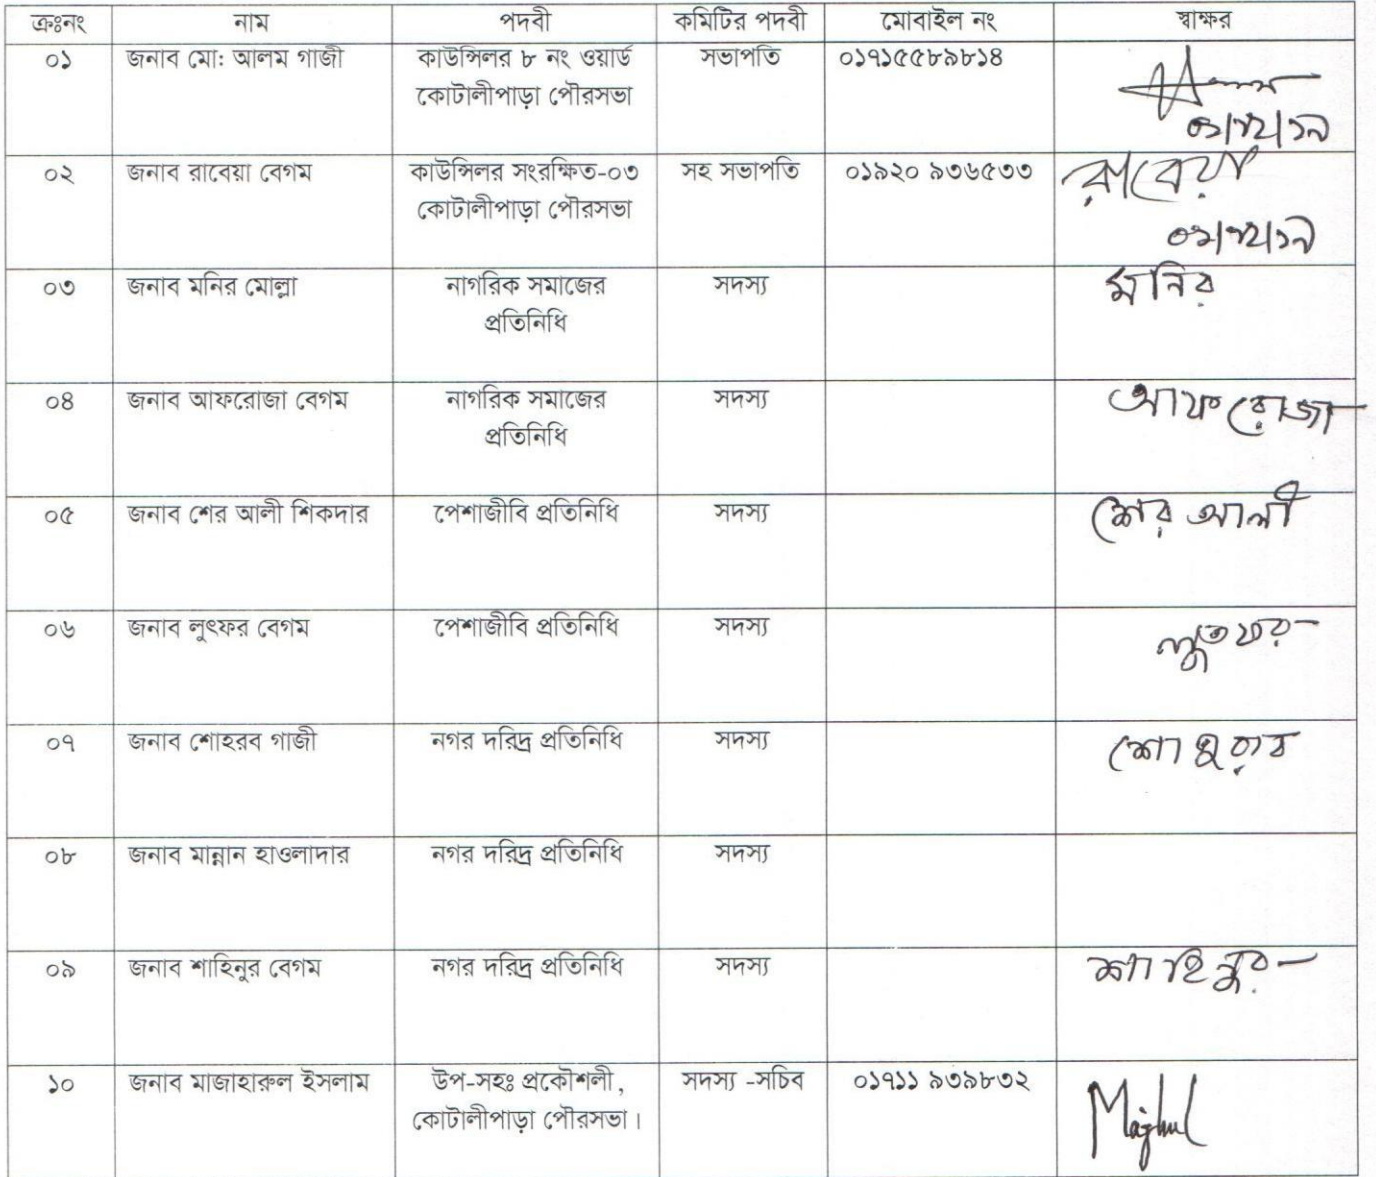 ক্রঃনং নাম পদবী কমিটির পদবী মোবাইল নং স্বাক্ষর
০১ জনাব মো: আলম গাজী কাউন্সিলর ৮ নং ওয়ার্ড সভাপতি ০১৭১৫৫৮৯৮১৪
কোটালীপাড়া পৌরসভা
০২ জনাব রাবেয়া বেগম কাউন্সিলর সংরক্ষিত-০৩ সহ সভাপতি ০১৯২০ ৯৩৬৫৩৩ রাবেয়া
কোটালীপাড়া পৌরসভা
০৩ জনাব মনির মোল্লা নাগরিক সমাজের সদস্য মনির
প্রতিনিধি
০৪ জনাব আফরোজা বেগম নাগরিক সমাজের সদস্য আফরোজা
প্রতিনিধি
০৫ জনাব শের আলী শিকদার পেশাজীবি প্রতিনিধি সদস্য শের আলী
০৬ জনাব লুৎফর বেগম পেশাজীবি প্রতিনিধি সদস্য লুতফর
০৭ জনাব শোহরব গাজী নগর দরিদ্র প্রতিনিধি সদস্য শোহরাব
০৮ জনাব মান্নান হাওলাদার নগর দরিদ্র প্রতিনিধি সদস্য
০৯ জনাব শাহিনুর বেগম নগর দরিদ্র প্রতিনিধি সদস্য শাহিনুর
১০ জনাব মাজাহারুল ইসলাম উপ-সহঃ প্রকৌশলী, সদস্য -সচিব ০১৭১১ ৯৩৯৮৩২
কোটালীপাড়া পৌরসভা।